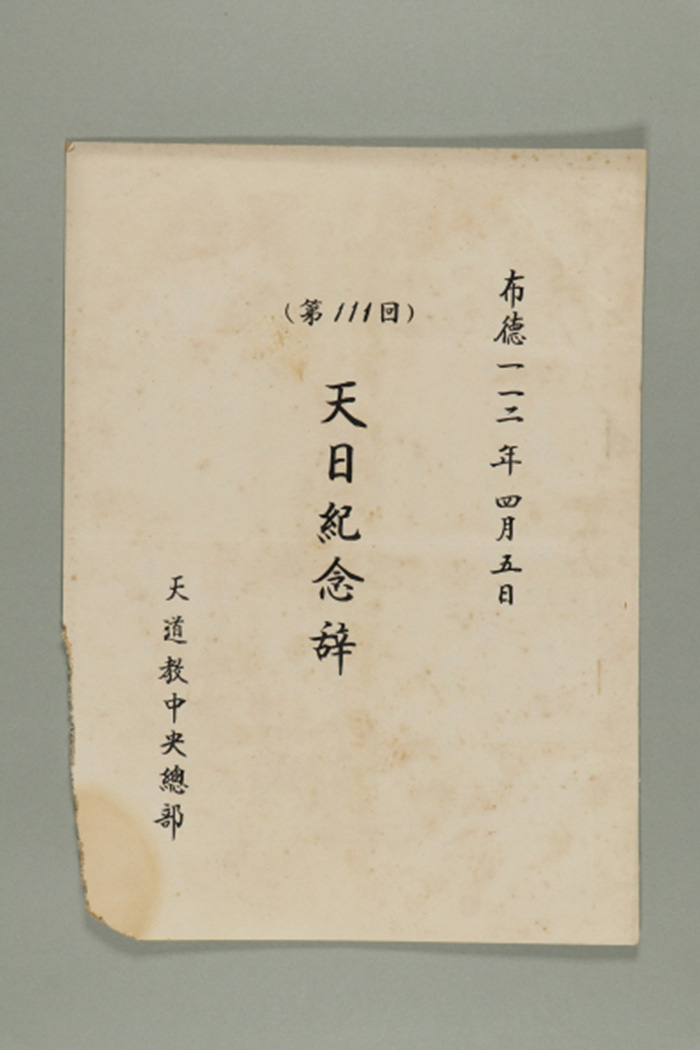 布德一一二年 四月五日
(第111回)
天日紀念辞
天道教中央總部